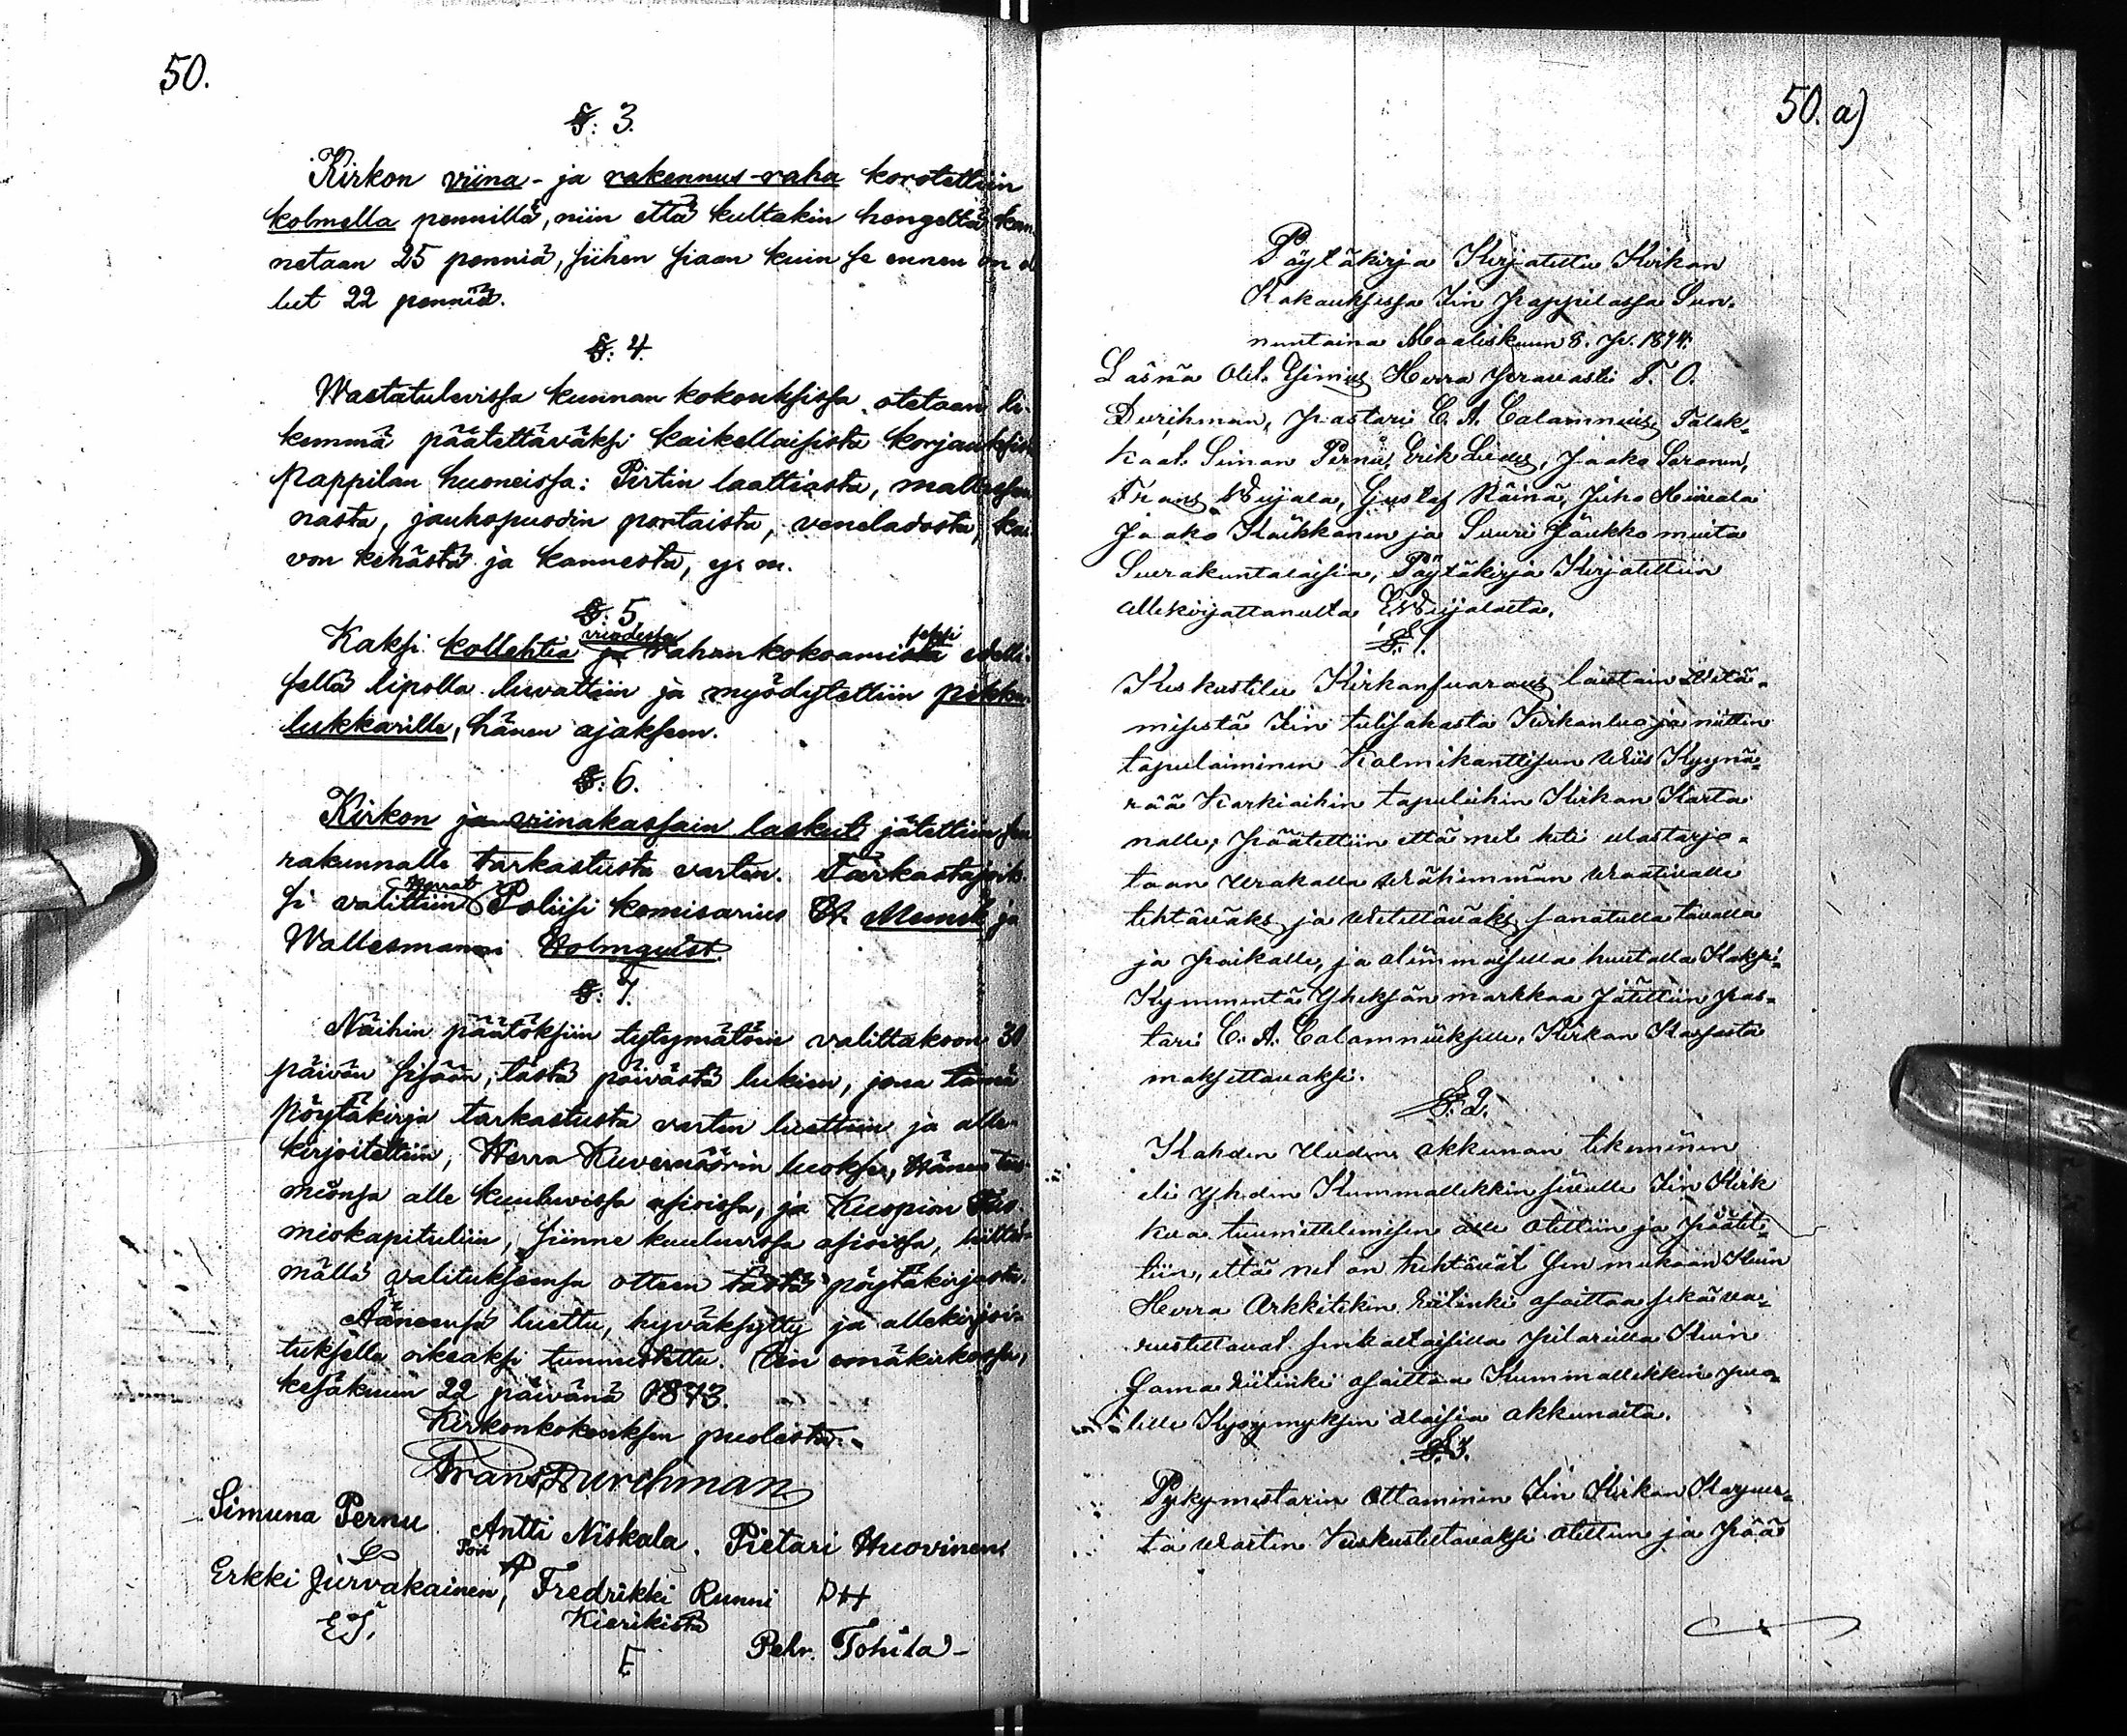 50.
§: 3.
Kirkon viina- ja rakennus-raha korotettiin
kolmella pennillä, niin että kultakin hengeltä kan-
netaan 25 penniä, siihen siaan kuin se ennen on ol
lut 22 penniä.
§: 4.
Wastatulevissa kunnan kokouksissa otetaan li-
kemmä päätettäväksi kaikellaisista korjauksista
pappilan huoneissa: Pirtin laattiasta,
nasta, jauhopuodin portaista, veneladosta, kai-
von kehästä ja kannesta, y. m.
§: 5.
Kaksi kollehtia vuodessa rahan kokoamiseksi edelli-
sellä lipolla luvattiin ja myödytettiin pikku-
lukkarille, hänen ajaksem.
§: 6.
Kirkon ja viinakassain laskut jätettiin seu
rakunnalle tarkastusta varten. Tarkastajoik-
si valittiin Herrat Poliisi komisarius A. Munck ja
Wallesmanni Holmqvist.
§: 7.
Näihin päätöksiin tytymätöin valittakoon 30
päivän sisään, tästä päivästä lukien, jona tämä
pöytäkirja tarkastusta varten luettiin ja alle-
kirjoitettiin, Herra Kuvernöörin luokse, Hänen tuo-
mionsa alle kuuluvissa asioissa, ja Kuopion Tuo
miokapituliin, siinne kuuluvissa asioissa, liittä-
mällä valituksensa otteen tästä pöytäkirjasta.
Ääneensä luettu, hyväksytty ja allekirjoi-
tuksella oikeaksi tunnustettu. Iin emäkirkossa,
kesäkuun 22 päivänä 1873.
Kirkonkokouksen puolesta.
Frans Durchman
Simuna Pernu Antti Niskala. Pietari Huovinen
Erkki Jurvakainen, Fredrikki Runni PH
EJ. Kierikistä
F Pehr. Tohila
50. a)
Pöytäkirja Kirjatettu Kirkon
Kokouksessa Iin Pappilassa Sun-
nuntaina Maaliskuun 8. p. 1874.
Läsnä Olit. Esimies Herra Provasti F. O.
Durchman, Pastori C. A. Calamnius, Talok-
kaat. Siman Pernu, Erik Liedes, Jaako Soronen,
Frans Wuijala, Gustaf Räinä, Juho Hiivala
Jaako Käikkönen ja Suuri Jöukko muita
Seurakuntalaisia, Pöytäkirja Kirjotettiin
allekirjattanulta E Wuijalalta.
§. 1.
Keskustelu Kirkonsuaraus lautain Wetä-
misestä Iin tulisahasta Kirkonluo ja niitten
tapuloiminen Kolmikanttisun Wiis Kyynä-
rää Korkioihin tapuleihin Kirkon Karta
nolle; Päätettiin että net heti ulostarjo-
taan Urakalla Wähimmän Waativalle
tehtäväks ja Wetettäväks sanatulla tavalla
ja Paikalle, ja alimmaisella huutolla Kaksi-
Kymmentä Yheksän markkaa Jätettiin Pas-
tori C. A. Calamniuksille. Kirkon Kassasta
maksettavaksi.
§. 2.
Kahden Uuden akkunan tekeminen
eli Yhden Kummallekkin sivulle Iin Kirk
koa tuumittelemisen alle Otettiin ja Päätet-
tiin, että net on tehtävät sen mukaan Kuin
Herra Arkkitehin riitinki osoittaa sekä va-
rustettavat senkaltaisilla Pilarilla Kuin
sama riitinki osoittaa Kummallekkin puo-
lille Kysymyksen alaisia akkunoita.
§. 3.
Pykymestarin Ottaminen Iin Kirkon Korjuu-
ta Warten Keskusteltavaksi Otettiin ja Pää